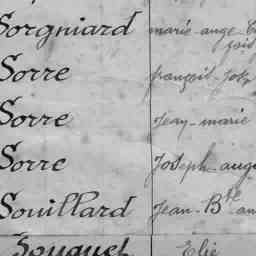 Sorgniard marie-ange
Sorre françois-
Sorre Jean-marie
Sorre Joseph-aug
Souillard Jean-Bte
Souquet Elie